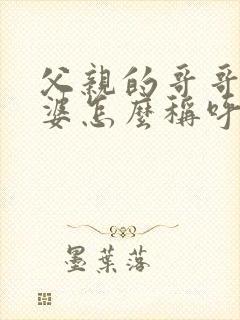 父親的哥哥
婆怎麼稱呼
墨葉落